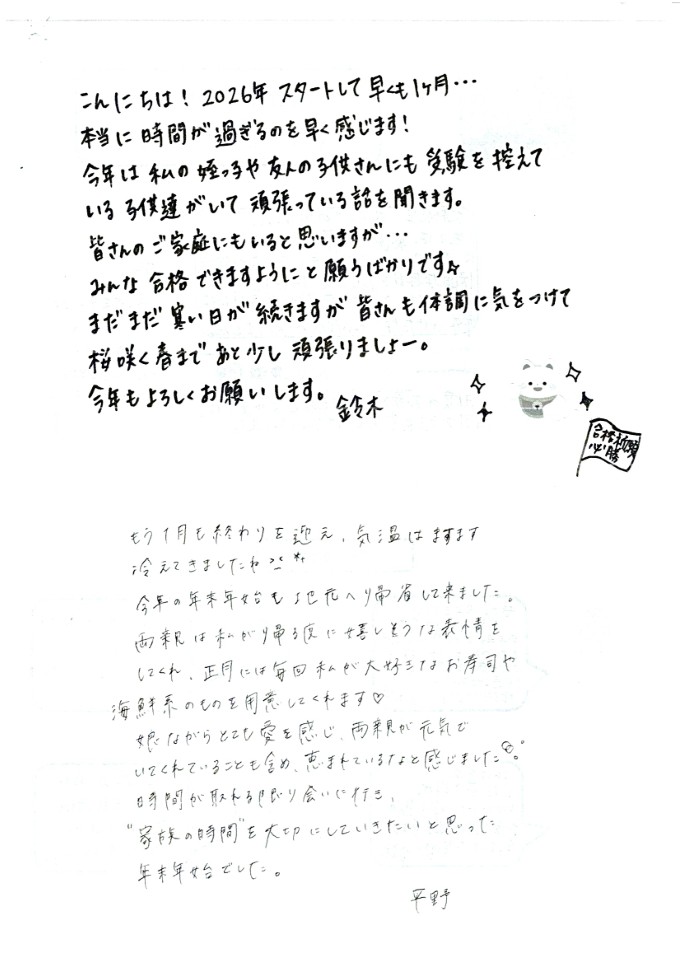 こんにちは！2026年 スタートして早くも1ヶ月…
本当に時間が過ぎるのを早く感じます！
今年は私の姪っ子や友人の子供さんにも受験を控えて
いる子供達がいて頑張っている話を聞きます。
皆さんのご家庭にもいると思いますが…
みんな合格できますようにと願うばかりです☆
まだまだ寒い日が続きますが皆さんも体調に気をつけて
桜咲く春まであと少し頑張りましょー。
今年もよろしくお願いします。
鈴木
合格祈願
必勝
もう1月も終わりを迎え、気温はますます
冷えてきましたね
今年の年末年始も地元へ帰省して来ました。
両親は私が帰る度に嬉しそうな表情を
してくれ、正月には毎回私が大好きなお寿司や
海鮮系のものを用意してくれます♡
娘ながらとても愛を感じ、両親が元気で
いてくれていることも含め、恵まれているなと感じました。
時間が取れる限り会いに行き、
"家族の時間"を大切にしていきたいと思った
年末年始でした。
平野